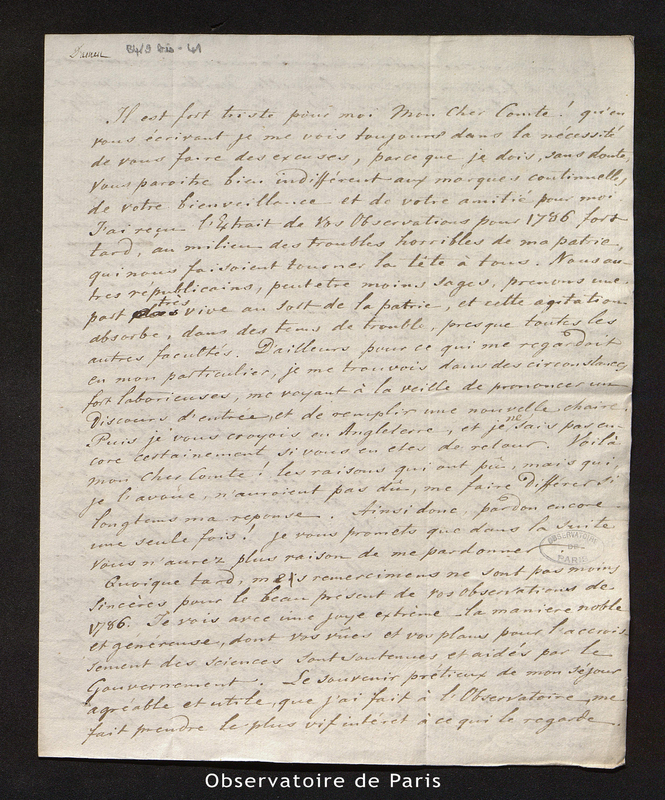 Damen B4/9 bis - 41
Il est fort triste pour moi Mon Cher Comte ! qu'en
vous écrivant je me vois toujours dans la nécessité
de vous faire des excuses, parceque je dois, sans doute,
vous paroitre bien indifférent aux marques continuelles
de votre bienveillance et de votre amitié pour moi.
J'ai reçu l'Extrait de vos Observations pour 1786 fort
tard, au milieu des troubles horribles de ma patrie,
qui nous faisoient tourner la tête à tous. Nous au-
tres républicains, peutetre moins sages, prenons une
part très vive au sort de la patrie, et cette agitation
absorbe, dans des tems de trouble, presque toutes les
autres facultés. D'ailleurs pour ce qui me regardoit
en mon particulier, je me trouvois dans des circonstances
fort laborieuses, me voyant à la veille de prononcer un
Discours d'entrée, et de remplir une nouvelle chaire.
Puis je vous croyois en Angleterre, et je ne sais pas en-
core certainement si vous en etes de retour. Voilà
mon Cher Comte ! les raisons qui ont pû, mais qui,
je l'avoue, n'auroient pas dû, me faire différer si
longtems ma reponse. Ainsi donc, pardon encore
une seule fois ! je vous promets que dans la suite
vous n'aurez plus raison de me pardonner
Quoique tard, mes remercimens ne sont pas moins
sincères, pour le beau present de vos observations de
1786. Je vois avec une joye extrême la manière noble
et généreuse, dont vos vues et vos plans pour l'accrois-
sement des sciences sont soutenues et aidés par le
Gouvernement. Le souvenir prétieux de mon séjour
agréable et utile, que j'ai fait à l'Observatoire, me
fait prendre le plus vif intérêt à ce qui le regarde.
OBSERVATOIRE
DE
PARIS
Observatoire de Paris